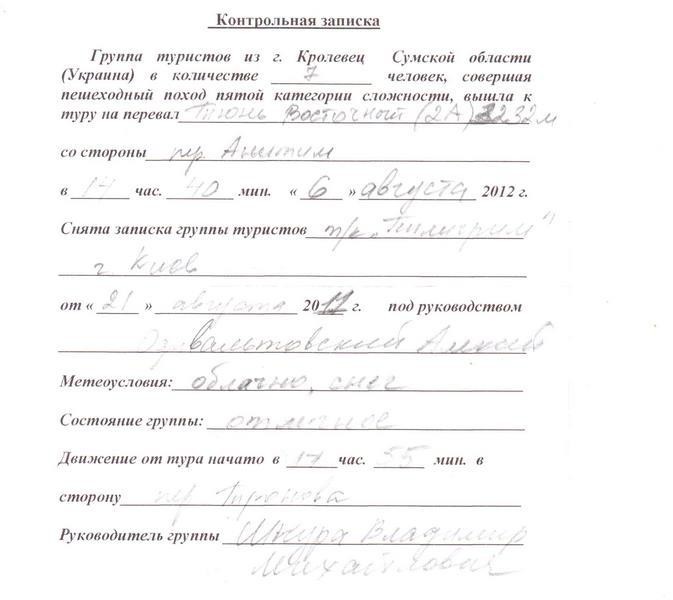 Контрольная записка
Группа туристов из г. Кролевец Сумской области
(Украина) в количестве 7 человек, совершая
пешеходный поход пятой категории сложности, вышла к
туру на перевал Восточный (2А) 3232м
со стороны пер
в 14 час. 40 мин. « 6 » августа 2012 г.
Снята записка группы туристов т/к „Пилигрим"
г. Киев
от « 21 » августа 2011 г. под руководством
Алексей
Метеоусловия: облачно, снег
Состояние группы: отличное
Движение от тура начато в час. 55 мин. в
сторону пер Тронова
Руководитель группы Шкура Владимир
Михайлович